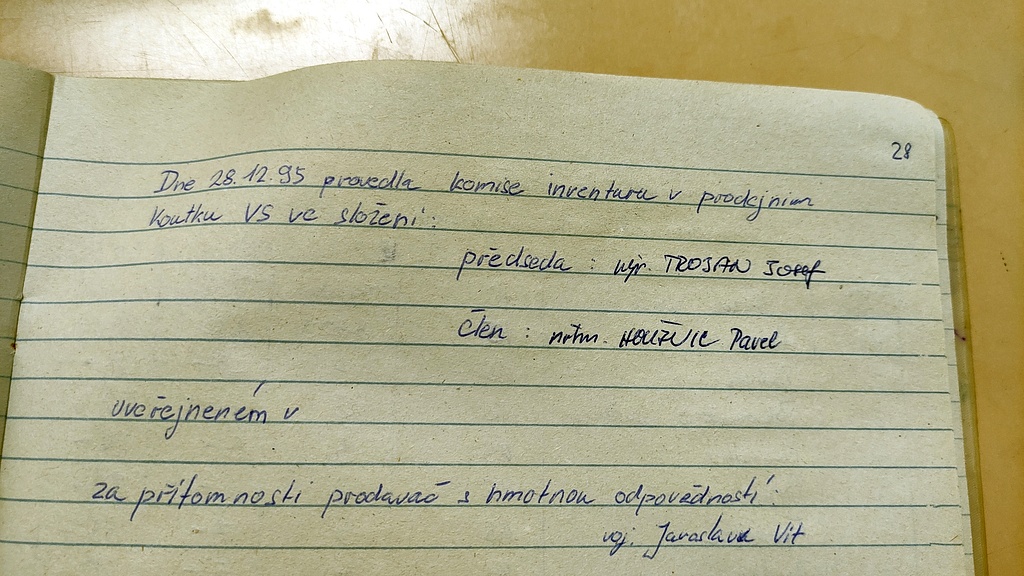 28
Dne 28.12.95 provedla komise inventuru v prodejním
koutku VS ve složení:
předseda : npr. TROJAN Josef
Člen : nrtm. Pavel
uveřejneném v
za přítomnosti prodavač s hmotnou odpovědností:
voj. Jaroslava Vít